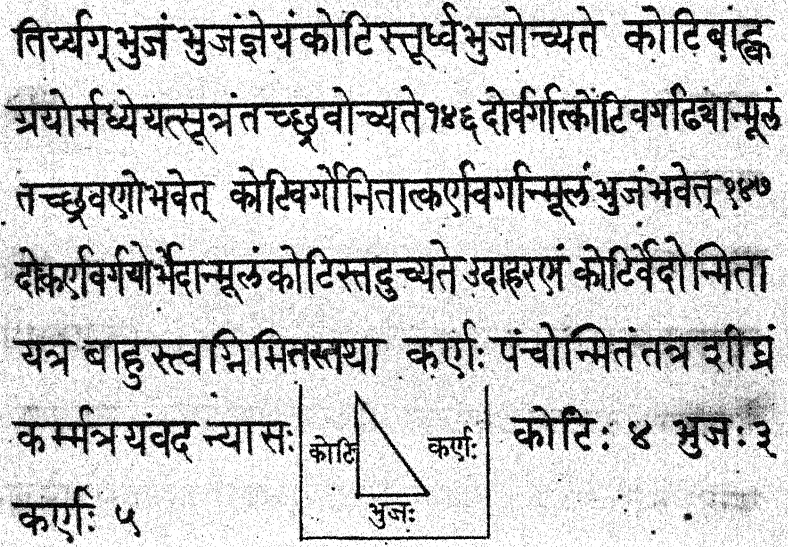 तिर्य्यग्भुजं भुजंज्ञेयंकोटिस्तूर्ध्वभुजोच्यते कोटिबाह्व
ग्रयोर्मध्येयत्सूत्रंतच्छ्रवोच्यते१४६ दोर्वर्गात्कोटिवर्गाढ्यान्मूलं
तच्छ्रवणोभवेत् कोटिवर्गोनितात्कर्णवर्गान्मूलंभुजंभवेत् १४७
दोःकर्णवर्गयोर्भेदान्मूलंकोटिस्तदुच्यते उदाहरणं कोटिर्वेदोन्मिता
यत्र बाहुस्त्वग्निमितस्तथा कर्णः पंचोन्मितंतत्र शीघ्रं
कर्म्मत्रयंवद न्यासः
कोटि
कर्णः
भुजः
कोटिः ४ भुजः ३
कर्णः ५